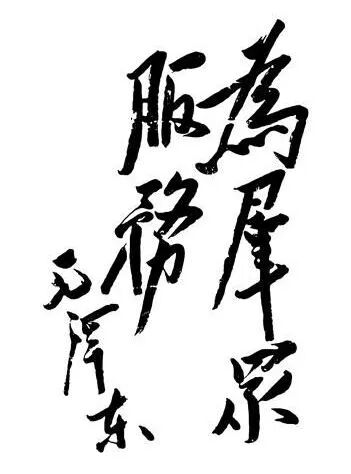 為羣眾
服務
毛澤东